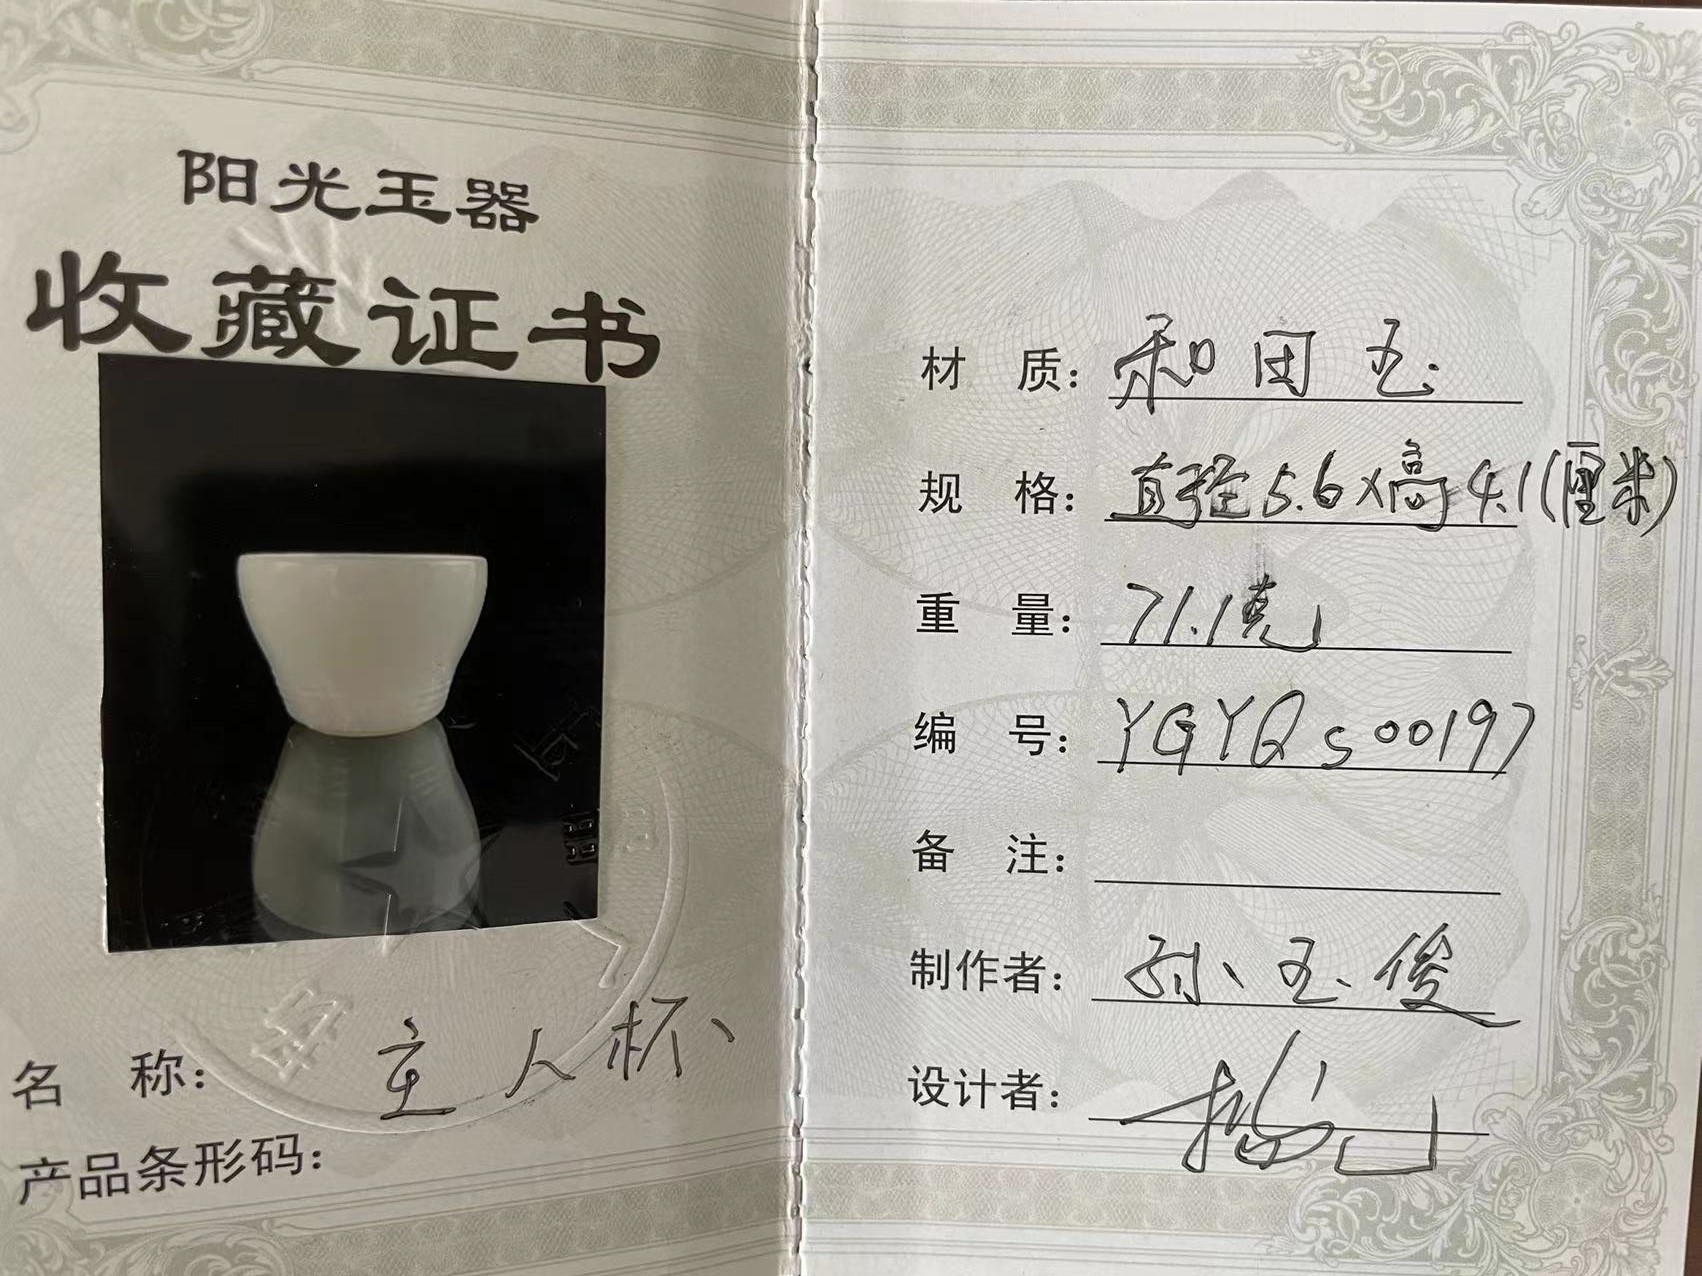 阳光玉器
收藏证书
名 称: 主人杯
产品条形码:
材 质: 和田玉
规 格: 直径5.6×高4.1(厘米)
重 量: 71.1克
编 号: YGYQs00197
备 注:
制作者: 孙玉俊
设计者: